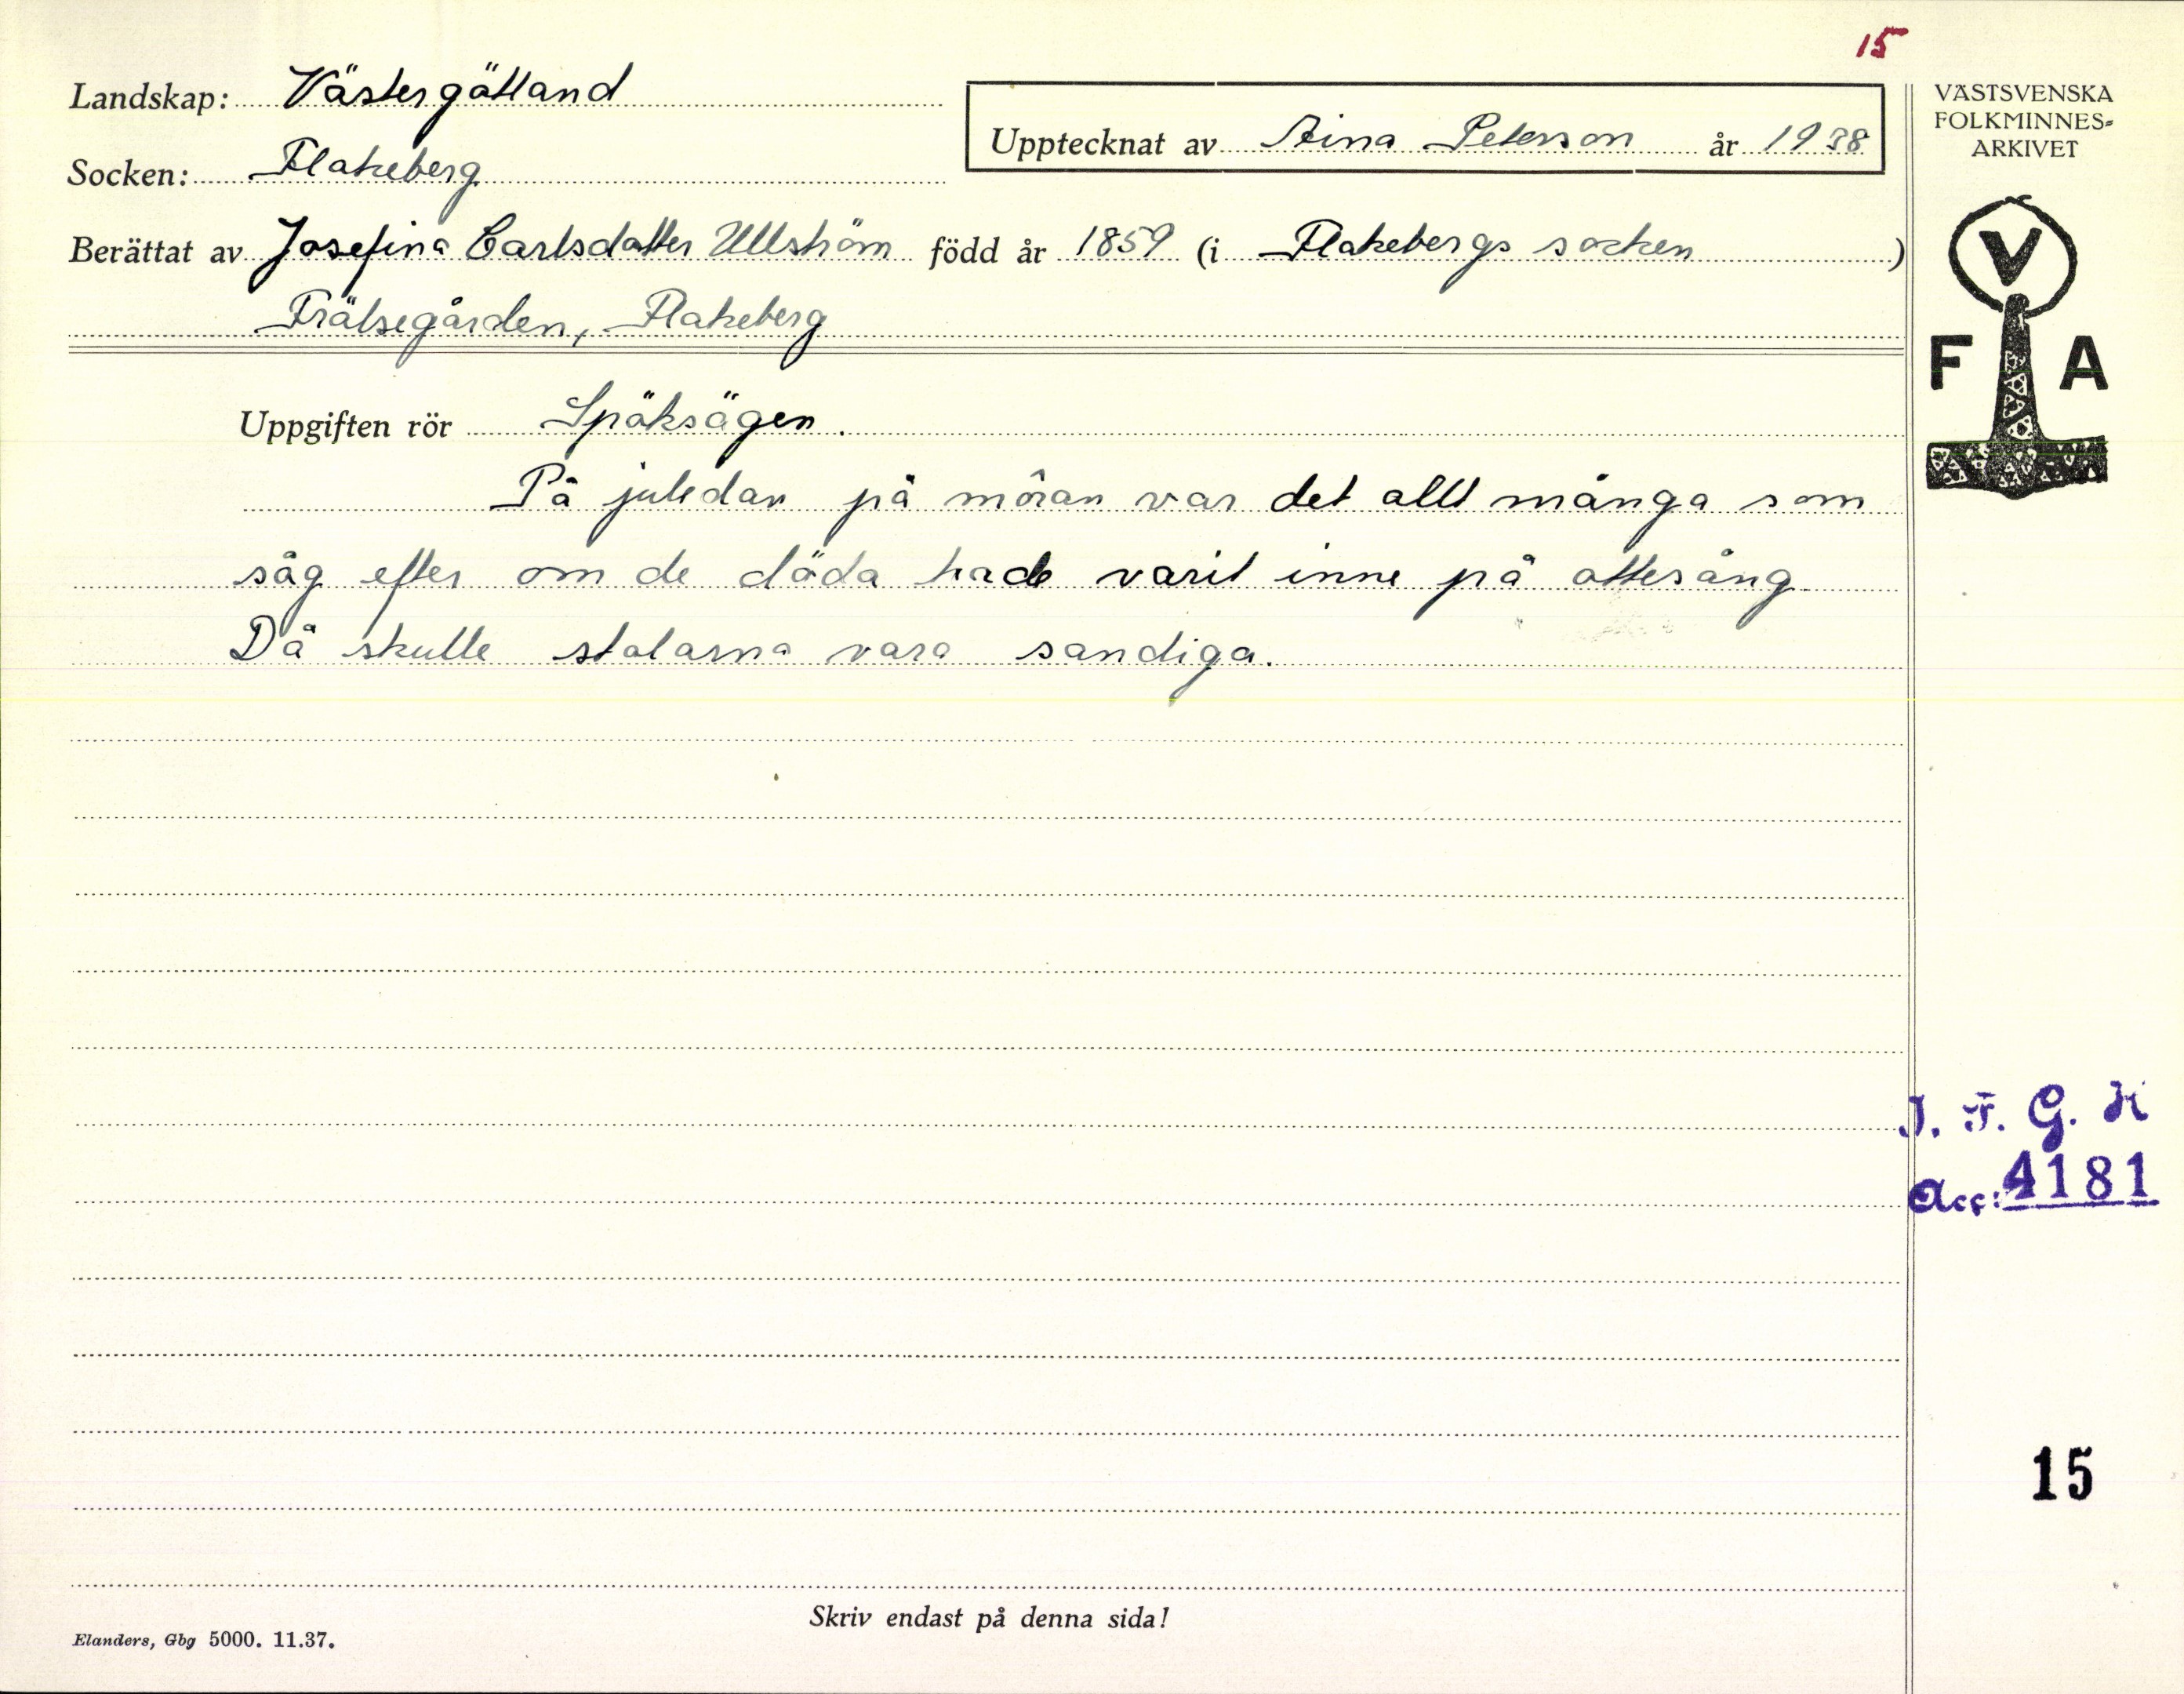 15
Landskap: Västergötland
Upptecknat av Aina Peterson år 1938
Socken: Flakeberg
Berättat av Josefina Carlsdotter Ullström född år 1859 (i Flakebergs socken)
Frälsegården, Flakeberg
VÄSTSVENSKA
FOLKMINNES-
ARKIVET
V
F A
Uppgiften rör Spöksägen.
På juledan på môran var det allt många som
såg efter om de döda hade varit inne på ottesång.
Då skulle stolarna vara sandiga.
I. F. G. H
Acc: 4181
15
Skriv endast på denna sida!
Elanders, Gbg 5000. 11.37.